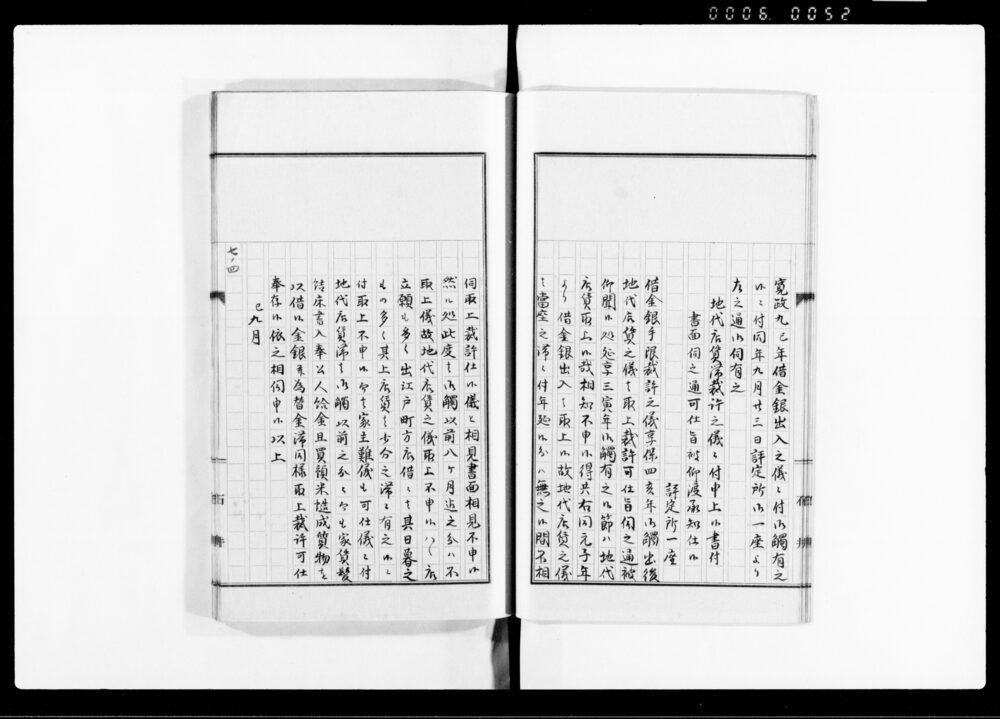 0006 0052
寛政九巳年借金銀出入之儀ニ付御觸有之
候ニ付同年九月廿三日評定所御一座より
左之通御伺有之
地代店賃滞裁許之儀ニ付申上候書付
書面伺之通可仕旨被仰渡承知仕候
評定所一座
借金銀手限裁許之儀享保四亥年御觸出後
地代店賃之儀も取上裁許可仕旨伺之通被
仰聞候処延享三寅年御觸有之候節ハ地代
店賃取上候哉相知不申候得共右同元子年
より借金銀出入も取上候故地代店賃之儀
も當座之滞ニ付年延候分ハ無之候間不相
伺取上裁許仕候儀と相見書面相見不申候
然ル処此度も御觸以前八ヶ月迄之分ハ不
取上儀故地代店賃之儀取上不申候ハヽ店
立願も多く出江戸町方店借ニも其日暮之
もの多く其上店賃も少分之滞ニ有之候ニ
付取上不申候而も家主難儀も可仕儀ニ付
地代店賃滞も御觸以前之分ニ而も家質髪
結床書入奉公人給金且買預米造成質物を
以借候金銀并為替金滞同様取上裁許可仕
奉存候依之相伺申候以上
巳九月
七ノ四